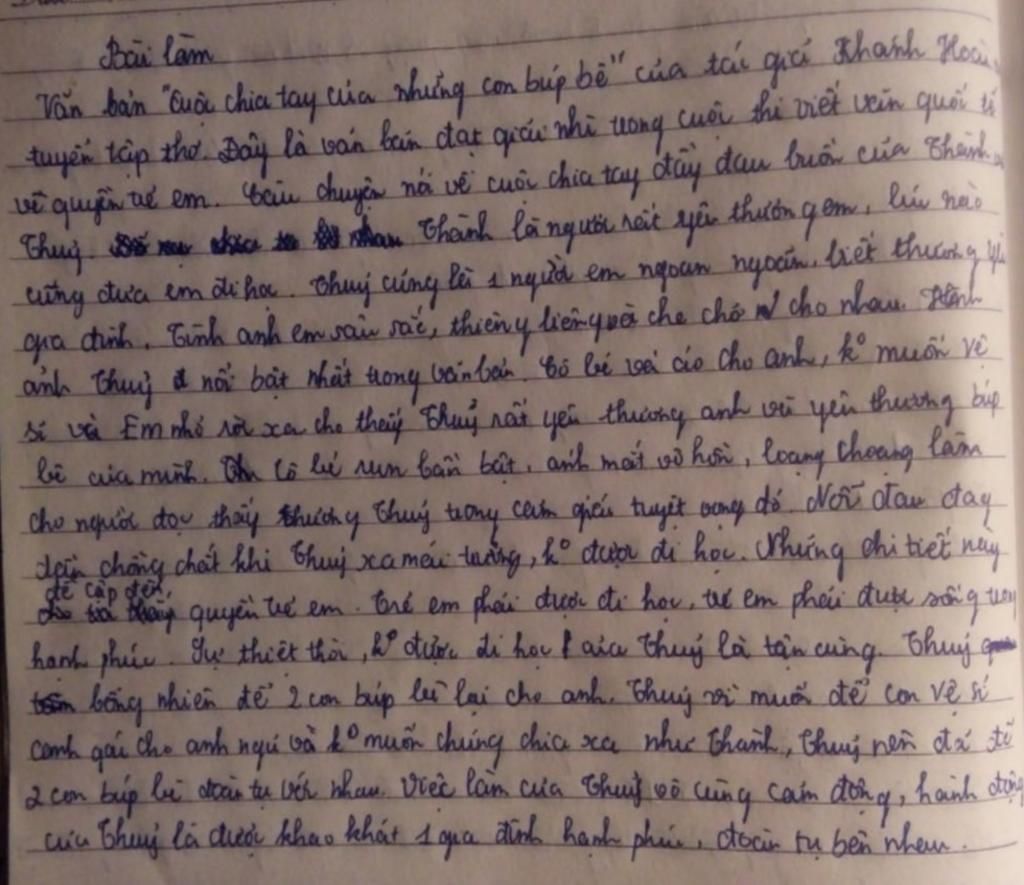 Bài làm
Văn bản "Cuộc chia tay của những con búp bê" của tác giả Khánh Hoài
tuyển tập thơ. Đây là văn bản đạt giải nhì trong cuộc thi viết văn quốc tế
về quyền trẻ em. Câu chuyện nói về cuộc chia tay đầy đau buồn của Thành
Thuỷ. Thành là người rất yêu thương em, lúc nào
cũng đưa em đi học. Thuỷ cũng là 1 người em ngoan ngoãn, biết thương yêu
gia đình. Tình anh em sâu sắc, thiêng liêng và che chở cho nhau. Hình
ảnh Thuỷ nổi bật nhất trong văn bản. Cô bé vá áo cho anh, k° muốn vệ
sĩ và Em nhỏ rời xa cho thấy Thuỷ rất yêu thương anh và yêu thương búp
bê của mình. Cô bé run bần bật, ánh mắt vô hồn, loạng choạng làm
cho người đọc thấy thương Thuỷ trong cảm giác tuyệt vọng đó. Nỗi đau đay
chồng chất khi Thuỷ xa mái trường, k° được đi học. Những chi tiết này
đề cập đến quyền trẻ em. Trẻ em phải được đi học, trẻ em phải được sống trong
hạnh phúc. Sự thiệt thòi, k° được đi học của Thuỷ là tận cùng. Thuỷ
bỗng nhiên để 2 con búp bê lại cho anh. Thuỷ vì muốn để con vệ sĩ
canh gác cho anh ngủ và k° muốn chúng chia xa như Thành, Thuỷ nên đã để
2 con búp bê đoàn tụ với nhau. Việc làm của Thuỷ vô cùng cảm động, hành động
của Thuỷ là được khao khát 1 gia đình hạnh phúc, đoàn tụ bên nhau.